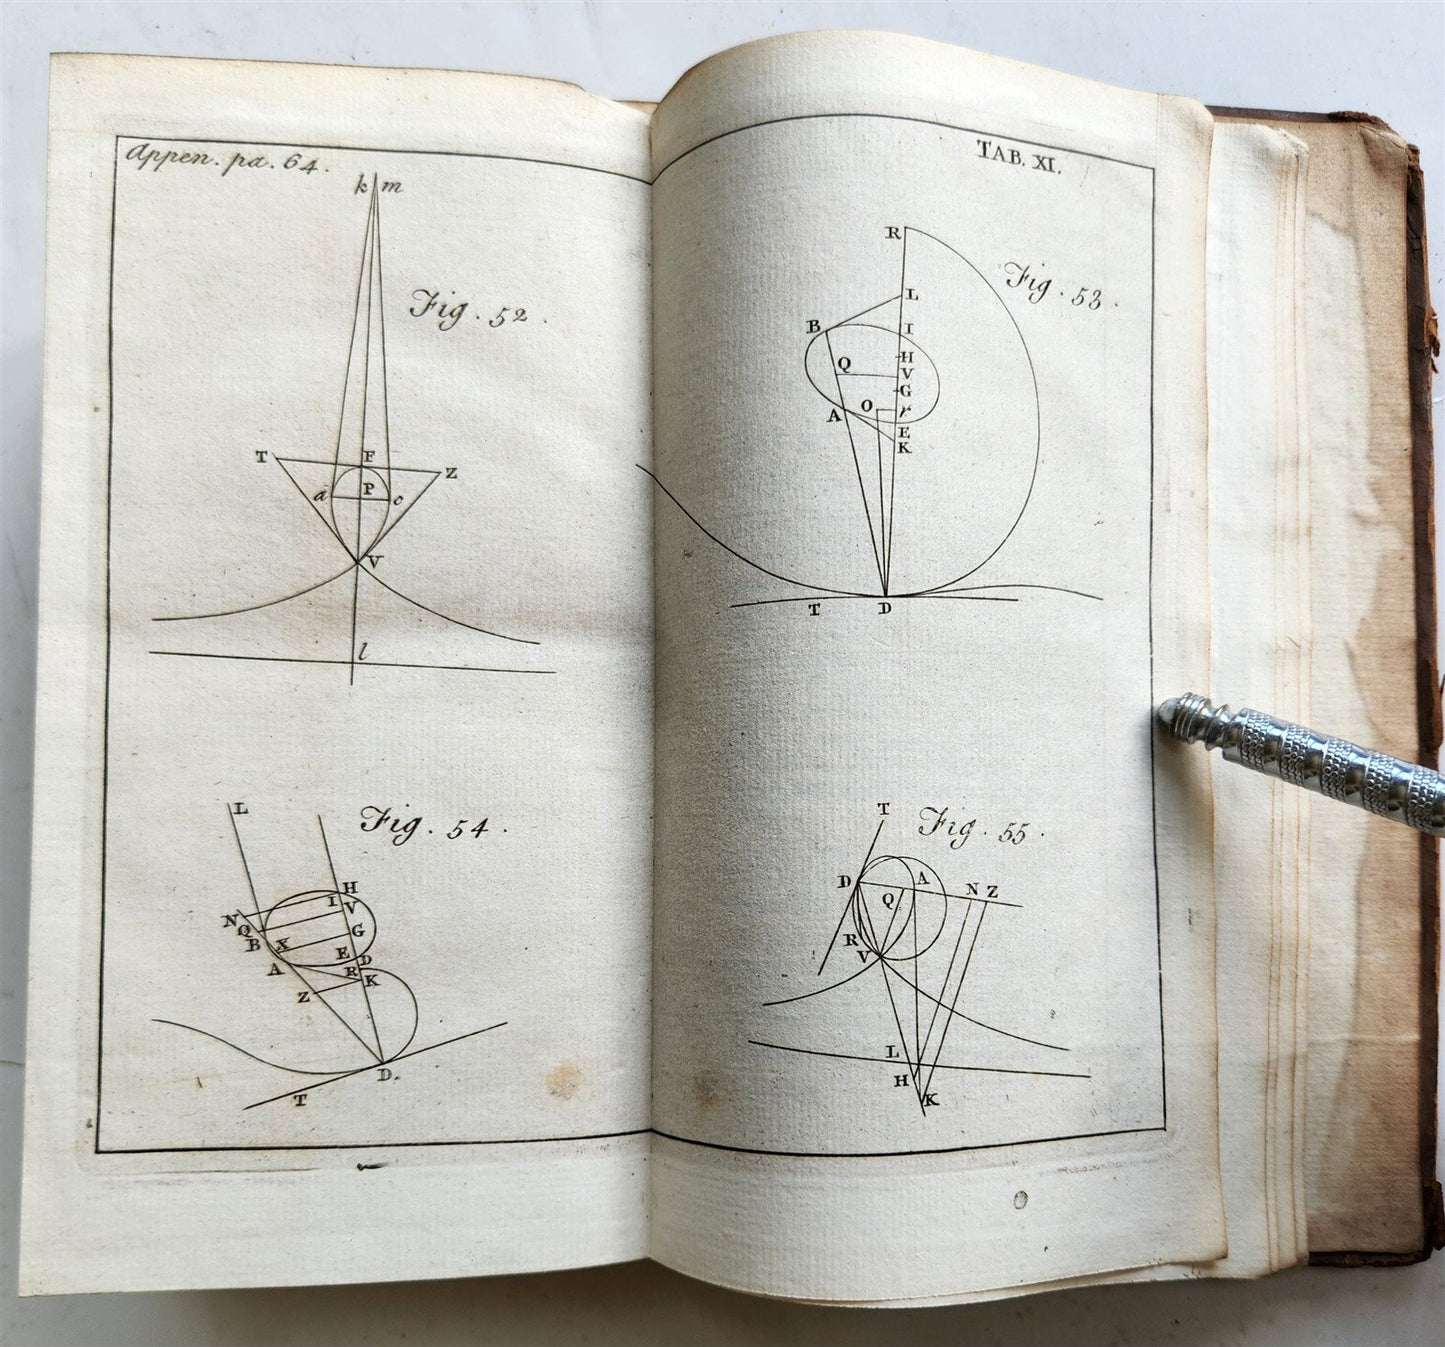 Appen. pa. 64.
TAB. XI.
k m
Fig. 52.
T F Z
a P c
V
l
R
Fig. 53.
L
B I
H
Q V
G
O r
A E
K
T D
L
Fig. 54.
H
N I V
Q G
B X E D
A R K
Z
D.
T
T
Fig. 55.
D A N Z
Q
R
V
L
H
K